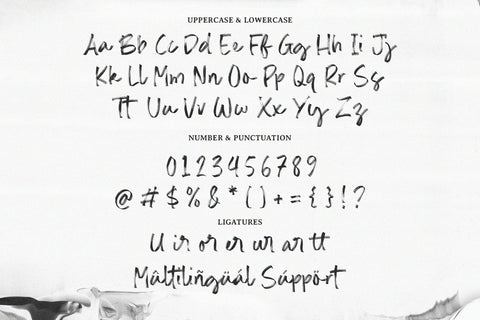 UPPERCASE & LOWERCASE
Aa Bb Cc Dd Ee Ff Gg Hh Ii Jj
Kk Ll Mm Nn Oo Pp Qq Rr Ss
Tt Uu Vv Ww Xx Yy Zz
NUMBER & PUNCTUATION
0 1 2 3 4 5 6 7 8 9
@ # $ % & * ( ) + = { } ! ?
LIGATURES
ll ir or er ur ar tt
Mûltïlìñgüál Súppört